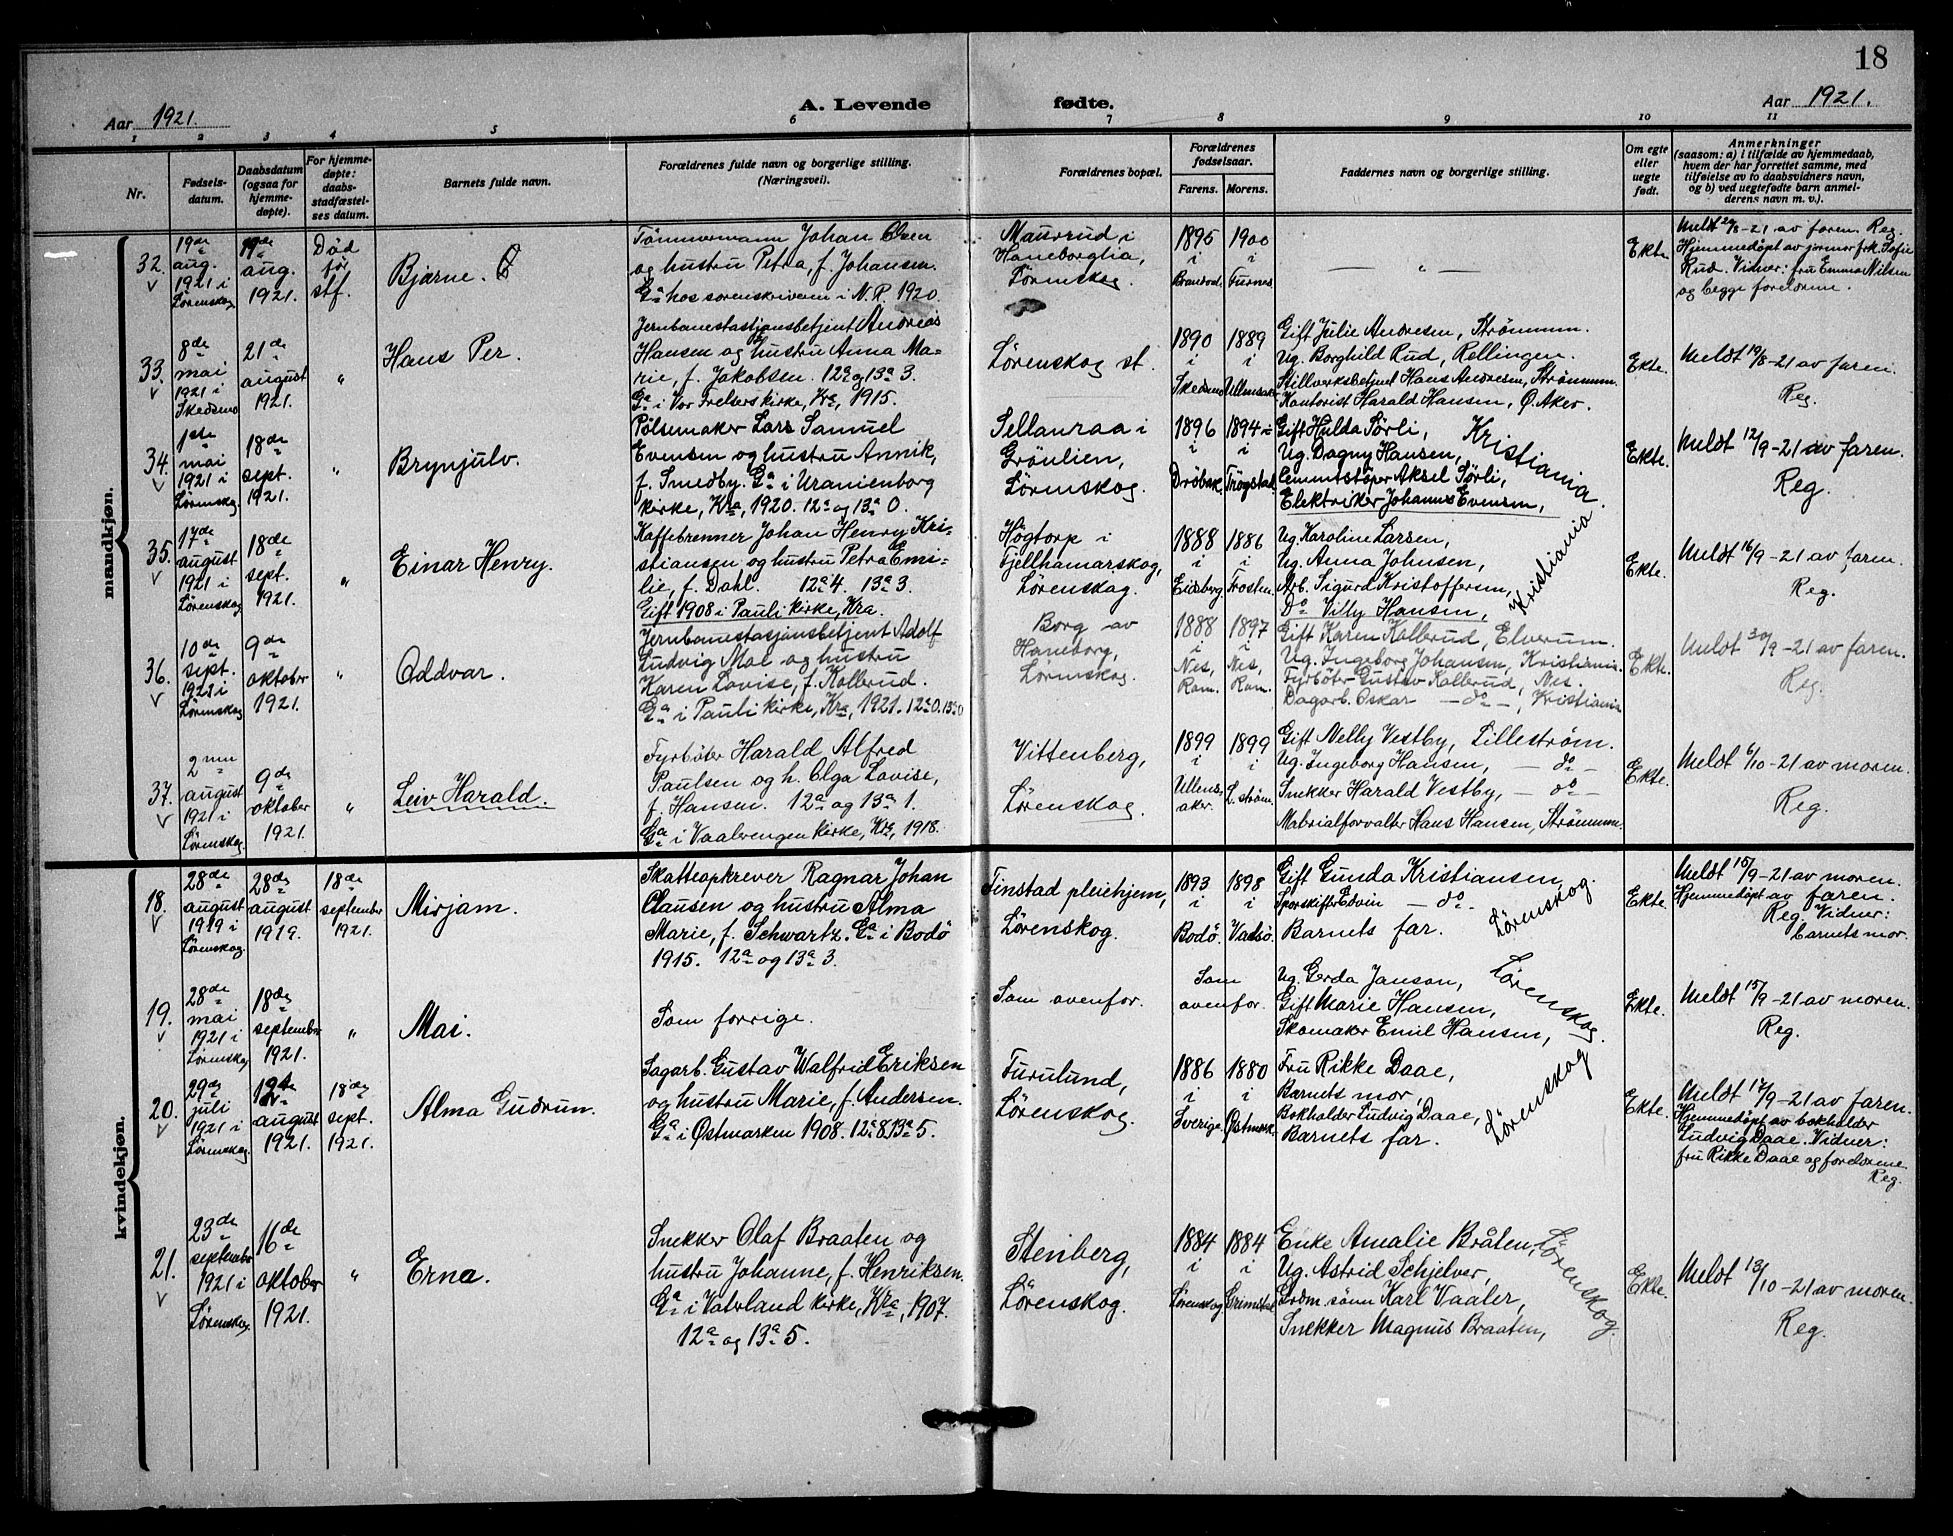 18
Aar 1921. A. Levende fødte. Aar 1921.
1 2 3 4 5 6 7 8 9 10 11
Nr.
Fødsels-
datum.
Daabsdatum
(ogsaa for
hjemme-
døpte).
For hjemme-
døpte:
daabs-
stadfæstel-
ses datum.
Barnets fulde navn.
Forældrenes fulde navn og borgerlige stilling.
(Næringsvei).
Forældrenes bopæl.
Forældrenes
fødselsaar.
Farens. Morens.
Faddernes navn og borgerlige stilling.
Om egte
eller
uegte
født.
Anmerkninger
(saasom: a) i tilfælde av hjemmedaab,
hvem der har forrettet samme, med
tilføielse av to daabsvidners navn,
og b) ved uegtefødte barn anmel-
derens navn m. v.).
mandkjøn.
32.
19de
aug.
1921 i
Lørenskog
19de
aug.
1921.
Død
før
stf.
Bjarne.
Tømmermann Johan Olsen
og hustru Petra, f. Johansen.
Ga hos sorenskriveren i N.R. 1920.
Maurrud i
Haneborglia,
Lørenskog
1895 1900
i i
Furnes
— " —
Ekte
Meldt 29/8-21 av faren. Reg.
Hjemmedøpt av jormor frk. Sofie
Rud. Vidner: fru Emma Nilsen
og begge foreldrene.
33.
8de
mai
1921 i
Skedsmo
21de
august
1921.
"
Hans Per.
Jernbanestasjonsbetjent Andreas
Hansen og hustru Anna Ma-
rie, f. Jakobsen. 12a og 13a 3.
Ga i Vor Frelsers kirke, Kra, 1915.
Lørenskog st.
1890 1889
i i
Skedsmo Ullensaker
Gift Julie Andresen, Strømmen.
Ug. Borghild Rud, Rellingen.
Stillverksbetjent Hans Andresen, Strømmen.
Kontorist Harald Hansen, Ø. Aker.
Ekte.
Meldt 19/8-21 av faren.
Reg.
34.
1ste
mai
1921 i
Lørenskog
18de
sept.
1921.
"
Brynjulv.
Pølsemaker Lars Samuel
Evensen og hustru Annik,
f. Smedby. Ga i Uranienborg
kirke, Kra, 1920. 12a og 13a 0.
Sellanraa i
Grønlien,
Lørenskog.
1896 1894
i i
Drøbak. Trøgstad.
Gift Hulda Sørli,
Ug. Dagny Hansen,
Cementstøper Aksel Sørli,
Elektriker Johannes Evensen,
Kristiania.
Ekte.
Meldt 12/9-21 av faren.
Reg.
35.
17de
august
1921 i
Lørenskog
18de
sept.
1921.
"
Einar Henry.
Kaffebrenner Johan Henry Kri-
stiansen og hustru Petra Emi-
lie, f. Dahl. 12a 4. 13a 3.
Gift 1908 i Pauli kirke, Kra.
Høgtorp i
Fjellhamarskog,
Lørenskog.
1888 1886
i i
Eidsberg Frosten.
Ug. Karoline Larsen,
Ug. Anna Johnsen,
Arb. Sigurd Kristoffersen,
Do Villy Hansen,
Kristiania
Ekte.
Meldt 16/9-21 av faren.
Reg.
36.
10de
sept.
1921 i
Lørenskog
9de
oktober
1921.
"
Oddvar.
Jernbanestasjonsbetjent Adolf
Ludvig Moe og hustru
Karen Lovise, f. Kollerud.
Ga i Pauli kirke, Kra, 1921. 12a0. 13a0
Borg av
Haneborg,
Lørenskog.
1888 1897
i i
Nes, Nes,
Rom. Rom.
Gift Karen Kollerud, Elverum.
Ug. Ingeborg Johansen, Kristiania.
Fyrbøter Gustav Kollerud, Nes.
Dagarb. Oskar — do —, Kristiania
Ekte.
Meldt 30/9-21 av faren.
Reg.
37.
2nen
august
1921 i
Lørenskog.
9de
oktober
1921.
"
Leiv Harald.
Fyrbøter Harald Alfred
Paulsen og h. Olga Lovise,
f. Hansen. 12a og 13a 1.
Ga i Vaalerengen kirke, Kra, 1918.
Vittenberg,
Lørenskog.
1899 1899
i i
Ullens- L.strøm.
aker.
Gift Nelly Vestby, Lillestrøm.
Ug. Ingeborg Hansen, — do —
Snekker Harald Vestby, — do —
Materialforvalter Hans Hansen, Strømmen.
Ekte.
Meldt 6/10-21 av moren.
Reg.
kvindekjøn.
18.
28de
august
1919 i
Lørenskog.
28de
august
1919.
18de
september
1921.
Mirjam.
Skatteopkrever Ragnar Johan
Clausen og hustru Alma
Marie, f. Schwartz. Ga i Bodø
1915. 12a og 13a 3.
Finstad pleiehjem,
Lørenskog.
1893 1898
i i
Bodø. Vadsø.
Gift Gunda Kristiansen,
Sporskifter Edvin — do —
Barnets far.
Lørenskog.
Ekte.
Meldt 15/9-21 av moren.
Hjemmedøpt av faren.
Reg. Vidner:
barnets mor.
19.
28de
mai
1921 i
Lørenskog
18de
september
1921.
"
Mai.
Som forrige.
Som ovenfor.
Som
ovenfor.
Ug. Gerda Janson,
Gift Marie Hansen,
Skomaker Emil Hansen,
Lørenskog.
Ekte.
Meldt 15/9-21 av moren.
Reg.
20.
29de
juli
1921 i
Lørenskog.
august
1921.
18de
sept.
1921.
Alma Gudrun.
Sagarb. Gustav Walfrid Eriksen
og hustru Marie, f. Andersen.
Ga i Østmarken 1908. 12a8. 13a5.
Furulund,
Lørenskog.
1886 1880
i i
Sverige. Østmark.
Fru Rikke Daae,
Barnets mor,
Bokholder Ludvig Daae,
Barnets far.
Lørenskog
Ekte.
Meldt 17/9-21 av faren.
Hjemmedøpt av bokholder
Ludvig Daae. Vidner:
fru Rikke Daae og foreldrene.
Reg.
21.
23de
september
1921 i
Lørenskog
16de
oktober
1921.
"
Erna.
Snekker Olaf Braaten og
hustru Johanne, f. Henriksen.
Ga i Vaterland kirke, Kra, 1907.
12a og 13a 5.
Stenberg,
Lørenskog.
1884 1884
i i
Lørenskog Grimstad
Enke Amalie Bråten,
Ug. Astrid Schjelver,
Grdm. sønn Karl Vaaler,
Snekker Magnus Braaten,
Lørenskog.
Ekte.
Meldt 13/10-21 av moren.
Reg.